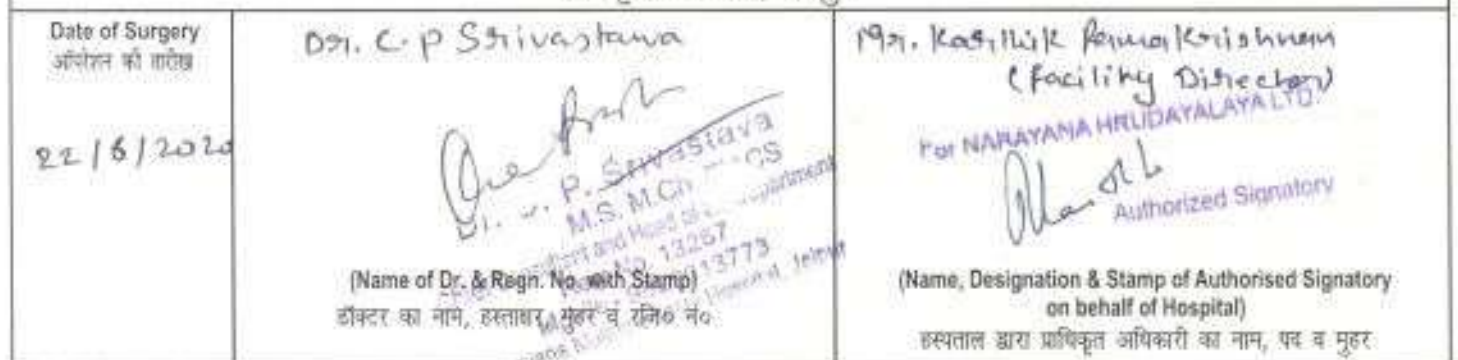 Date of Surgery
ऑपरेशन की तारीख
22/8/2020
Dr. C. P Srivastava
P. Srivastava
M.S. M.Ch
13267
13773
(Name of Dr. & Regn. No. with Stamp)
डॉक्टर का नाम, हस्ताक्षर, मुहर व रजि० नं०
Mr. Karthik Ramakrishnan
(Facility Director)
For NARAYANA HRUDAYALAYA LTD.
Authorized Signatory
(Name, Designation & Stamp of Authorised Signatory
on behalf of Hospital)
हस्पताल द्वारा प्राधिकृत अधिकारी का नाम, पद व मुहर